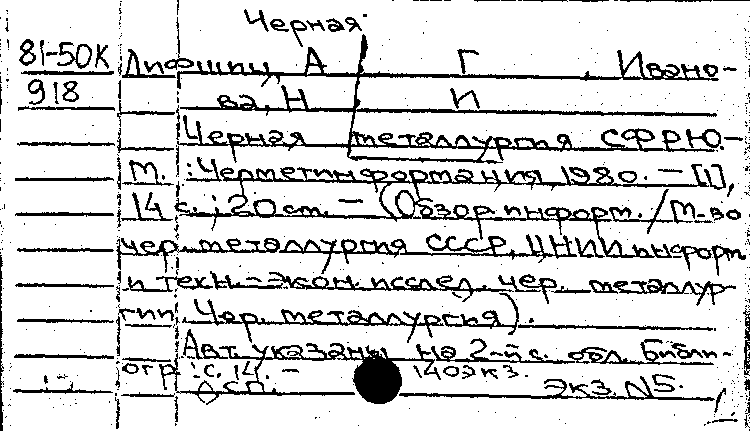 Черная
81-50К Лифшиц, А Г , Ивано-
918 ва, Н И
Черная металлургия СФРЮ.-
М. : Черметинформация, 1980. - [1],
14 с. ; 20 см. - (Обзор. информ. / М-во
чер. металлургия СССР, ЦНИИ информ
и техн.-экон. исслед. чер. металлур-
гии. Чер. металлургия).
Авт. указаны на 2-й с. обл. Библи-
огр : с. 14. - 140 экз.
экз. N5.